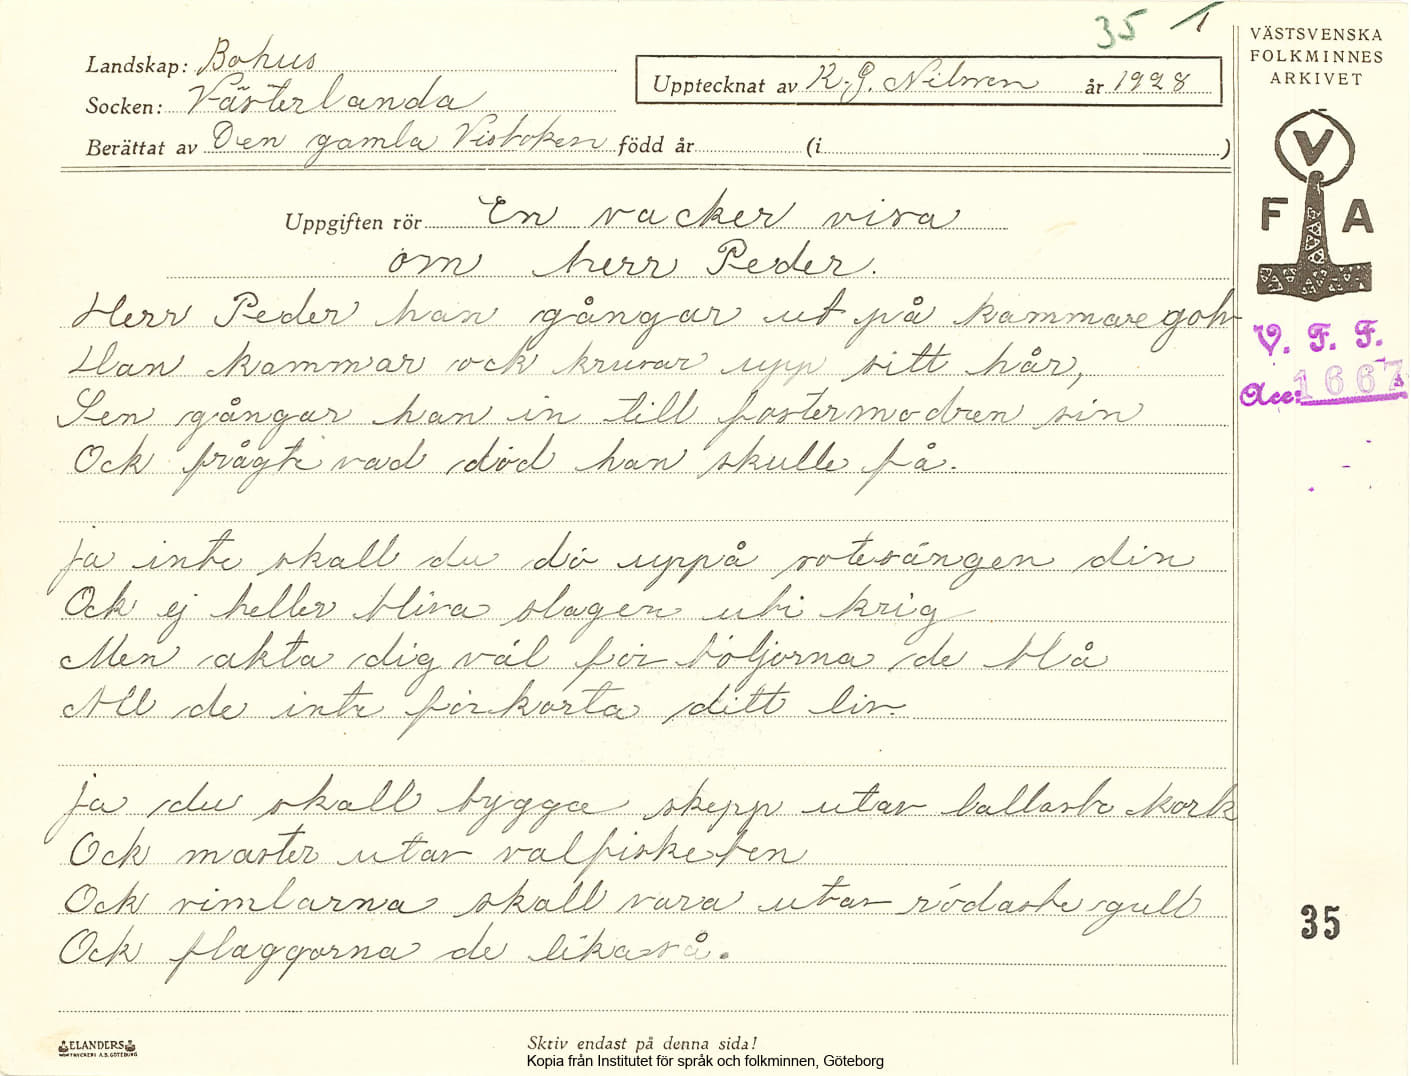 35 1
VÄSTSVENSKA
FOLKMINNES
ARKIVET
Landskap: Bohus
Upptecknat av K. G. Nilsson år 1928
Socken: Västerlanda
Berättat av Den gamla Visboken född år (i )
V
F A
Uppgiften rör En vacker visa
om herr Peder.
V. F. F.
Acc: 1667
Herr Peder han gångar ut på kammaregolv
Han kammar ock krusar upp sitt hår,
Sen gångar han in till fostermodren sin
Ock frågte vad död han skulle få.
Ja inte skall du dö uppå sotesängen din
Ock ej heller bliva slagen uti krig
Men akta dig väl för böljorna de blå
All de inte förkorta ditt liv.
Ja du skall bygga skepp utav ballaste kork
Ock master utav valfiskeben
Ock vimlarna skall vara utav rödaste gull
Ock flaggorna de likaså.
35
ELANDERS
BOKTRYCKERI A.B. GÖTEBORG
Skriv endast på denna sida!
Kopia från Institutet för språk och folkminnen, Göteborg